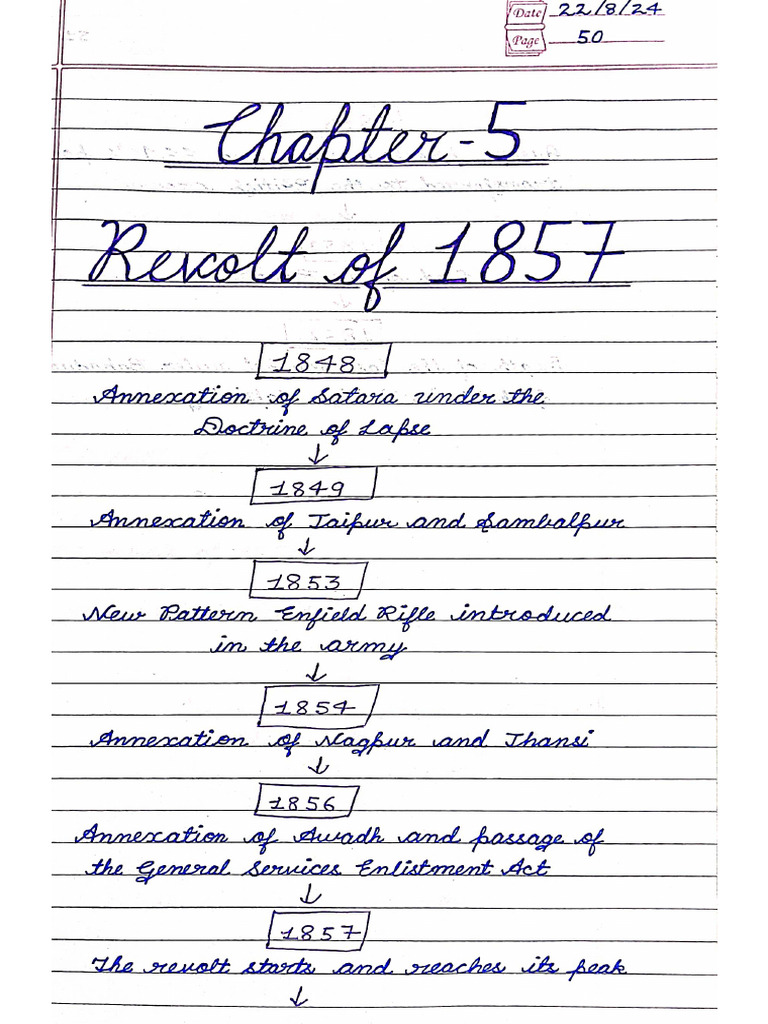 Date 22/8/24
Page 50
Chapter-5
Revolt of 1857
1848
Annexation of Satara under the
Doctrine of Lapse
↓
1849
Annexation of Jaipur and Sambalpur
↓
1853
New Pattern Enfield Rifle introduced
in the army
↓
1854
Annexation of Nagpur and Jhansi
↓
1856
Annexation of Awadh and passage of
the General Services Enlistment Act
↓
1857
The revolt starts and reaches its peak
↓